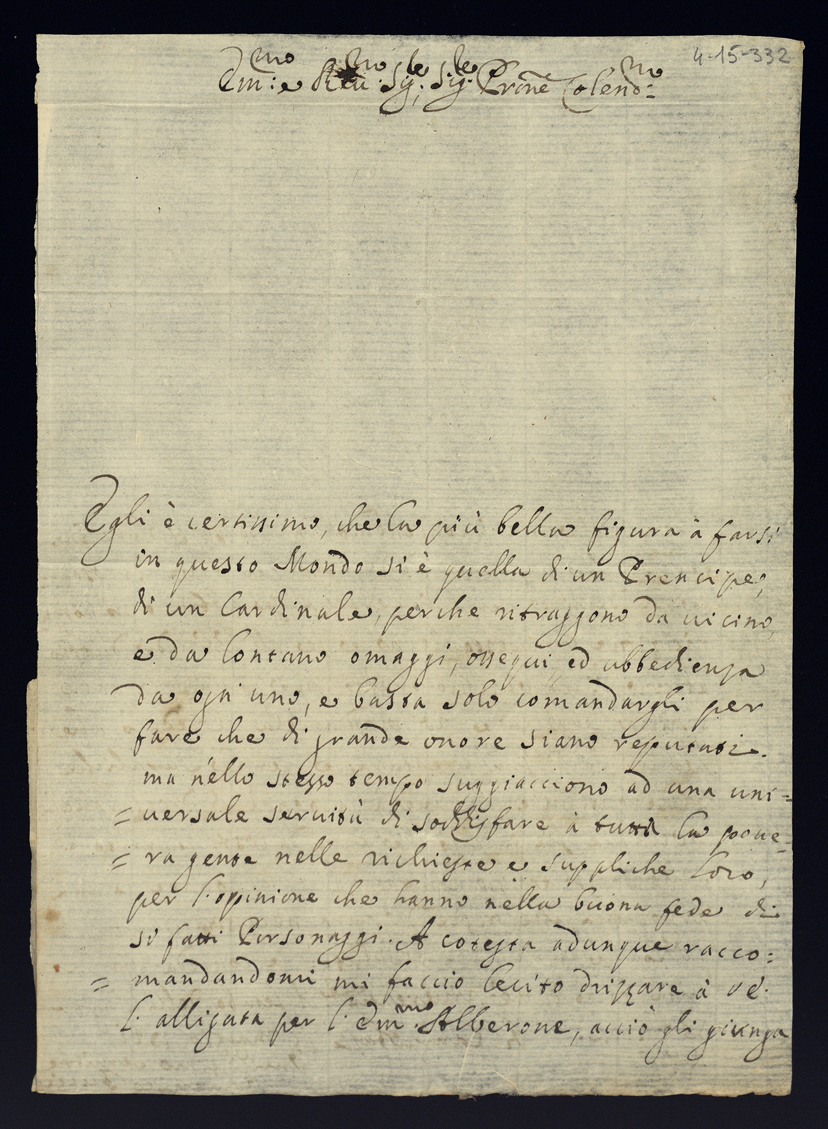 4-15-332
Em:mo e Rev:mo Sig:le Sig:le Prone Colend:mo
Egli è certissimo, che la più bella figura à farsi
in questo Mondo si è quella di un Prencipe,
di un Cardinale, perche ritraggono da vicino,
e da lontano omaggi, ossequi ed ubbedienza
da ogn'uno, e basta solo comandargli per
fare che di grande onore siano reputati.
ma nello stesso tempo suggiacciono ad una uni=
=versale servitù di soddisfare à tutta la pove=
=ra gente nelle richieste e suppliche loro,
per l'opinione che hanno nella buona fede di
si fatti Personaggi. A cotesta adunque racco:
=mandandomi mi faccio lecito drizzare à V.E.
l'alligata per l'Em:mo Alberone, acciò gli giunga